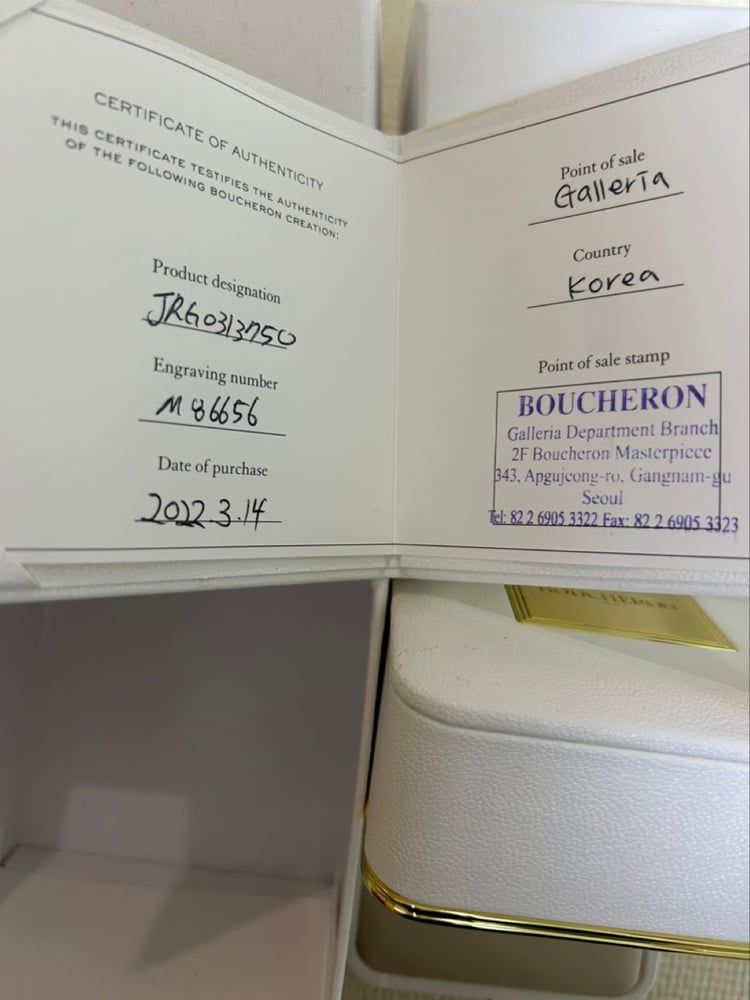 CERTIFICATE OF AUTHENTICITY
THIS CERTIFICATE TESTIFIES THE AUTHENTICITY
OF THE FOLLOWING BOUCHERON CREATION:
Product designation
JRG0313750
Engraving number
M86656
Date of purchase
2022.3.14
Point of sale
Galleria
Country
Korea
Point of sale stamp
BOUCHERON
Galleria Department Branch
2F Boucheron Masterpiece
343, Apgujeong-ro, Gangnam-gu
Seoul
Tel: 82 2 6905 3322 Fax: 82 2 6905 3323
BOUCHERON